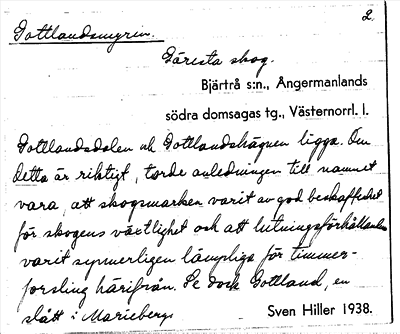 2.
Gottlandsmyrin.
Gåresta skog.
Bjärtrå s:n., Ångermanlands
södra domsagas tg., Västernorrl. l.
Gottlandsdalen och Gottlandshägnen ligga. Om
detta är riktigt, torde anledningen till namnet
vara, att skogsmarken varit av god beskaffenhet
för skogens växtlighet och att lutningsförhållanden
varit synnerligen lämpliga för timmer-
forsling härifrån. Se dock Gottland, en
slått i Marieberg.
Sven Hiller 1938.